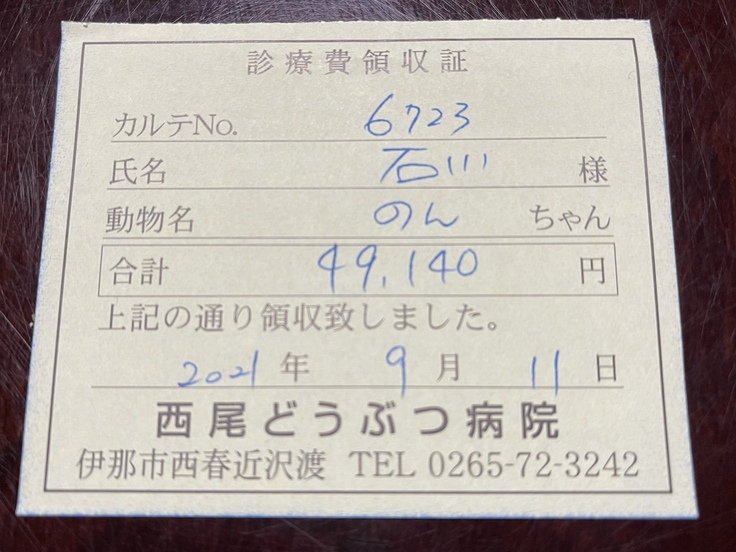 診療費領収証
カルテNo. 6723
氏名 石川 様
動物名 のん ちゃん
合計 49,140 円
上記の通り領収致しました。
2021 年 9 月 11 日
西尾どうぶつ病院
伊那市西春近沢渡 TEL 0265-72-3242